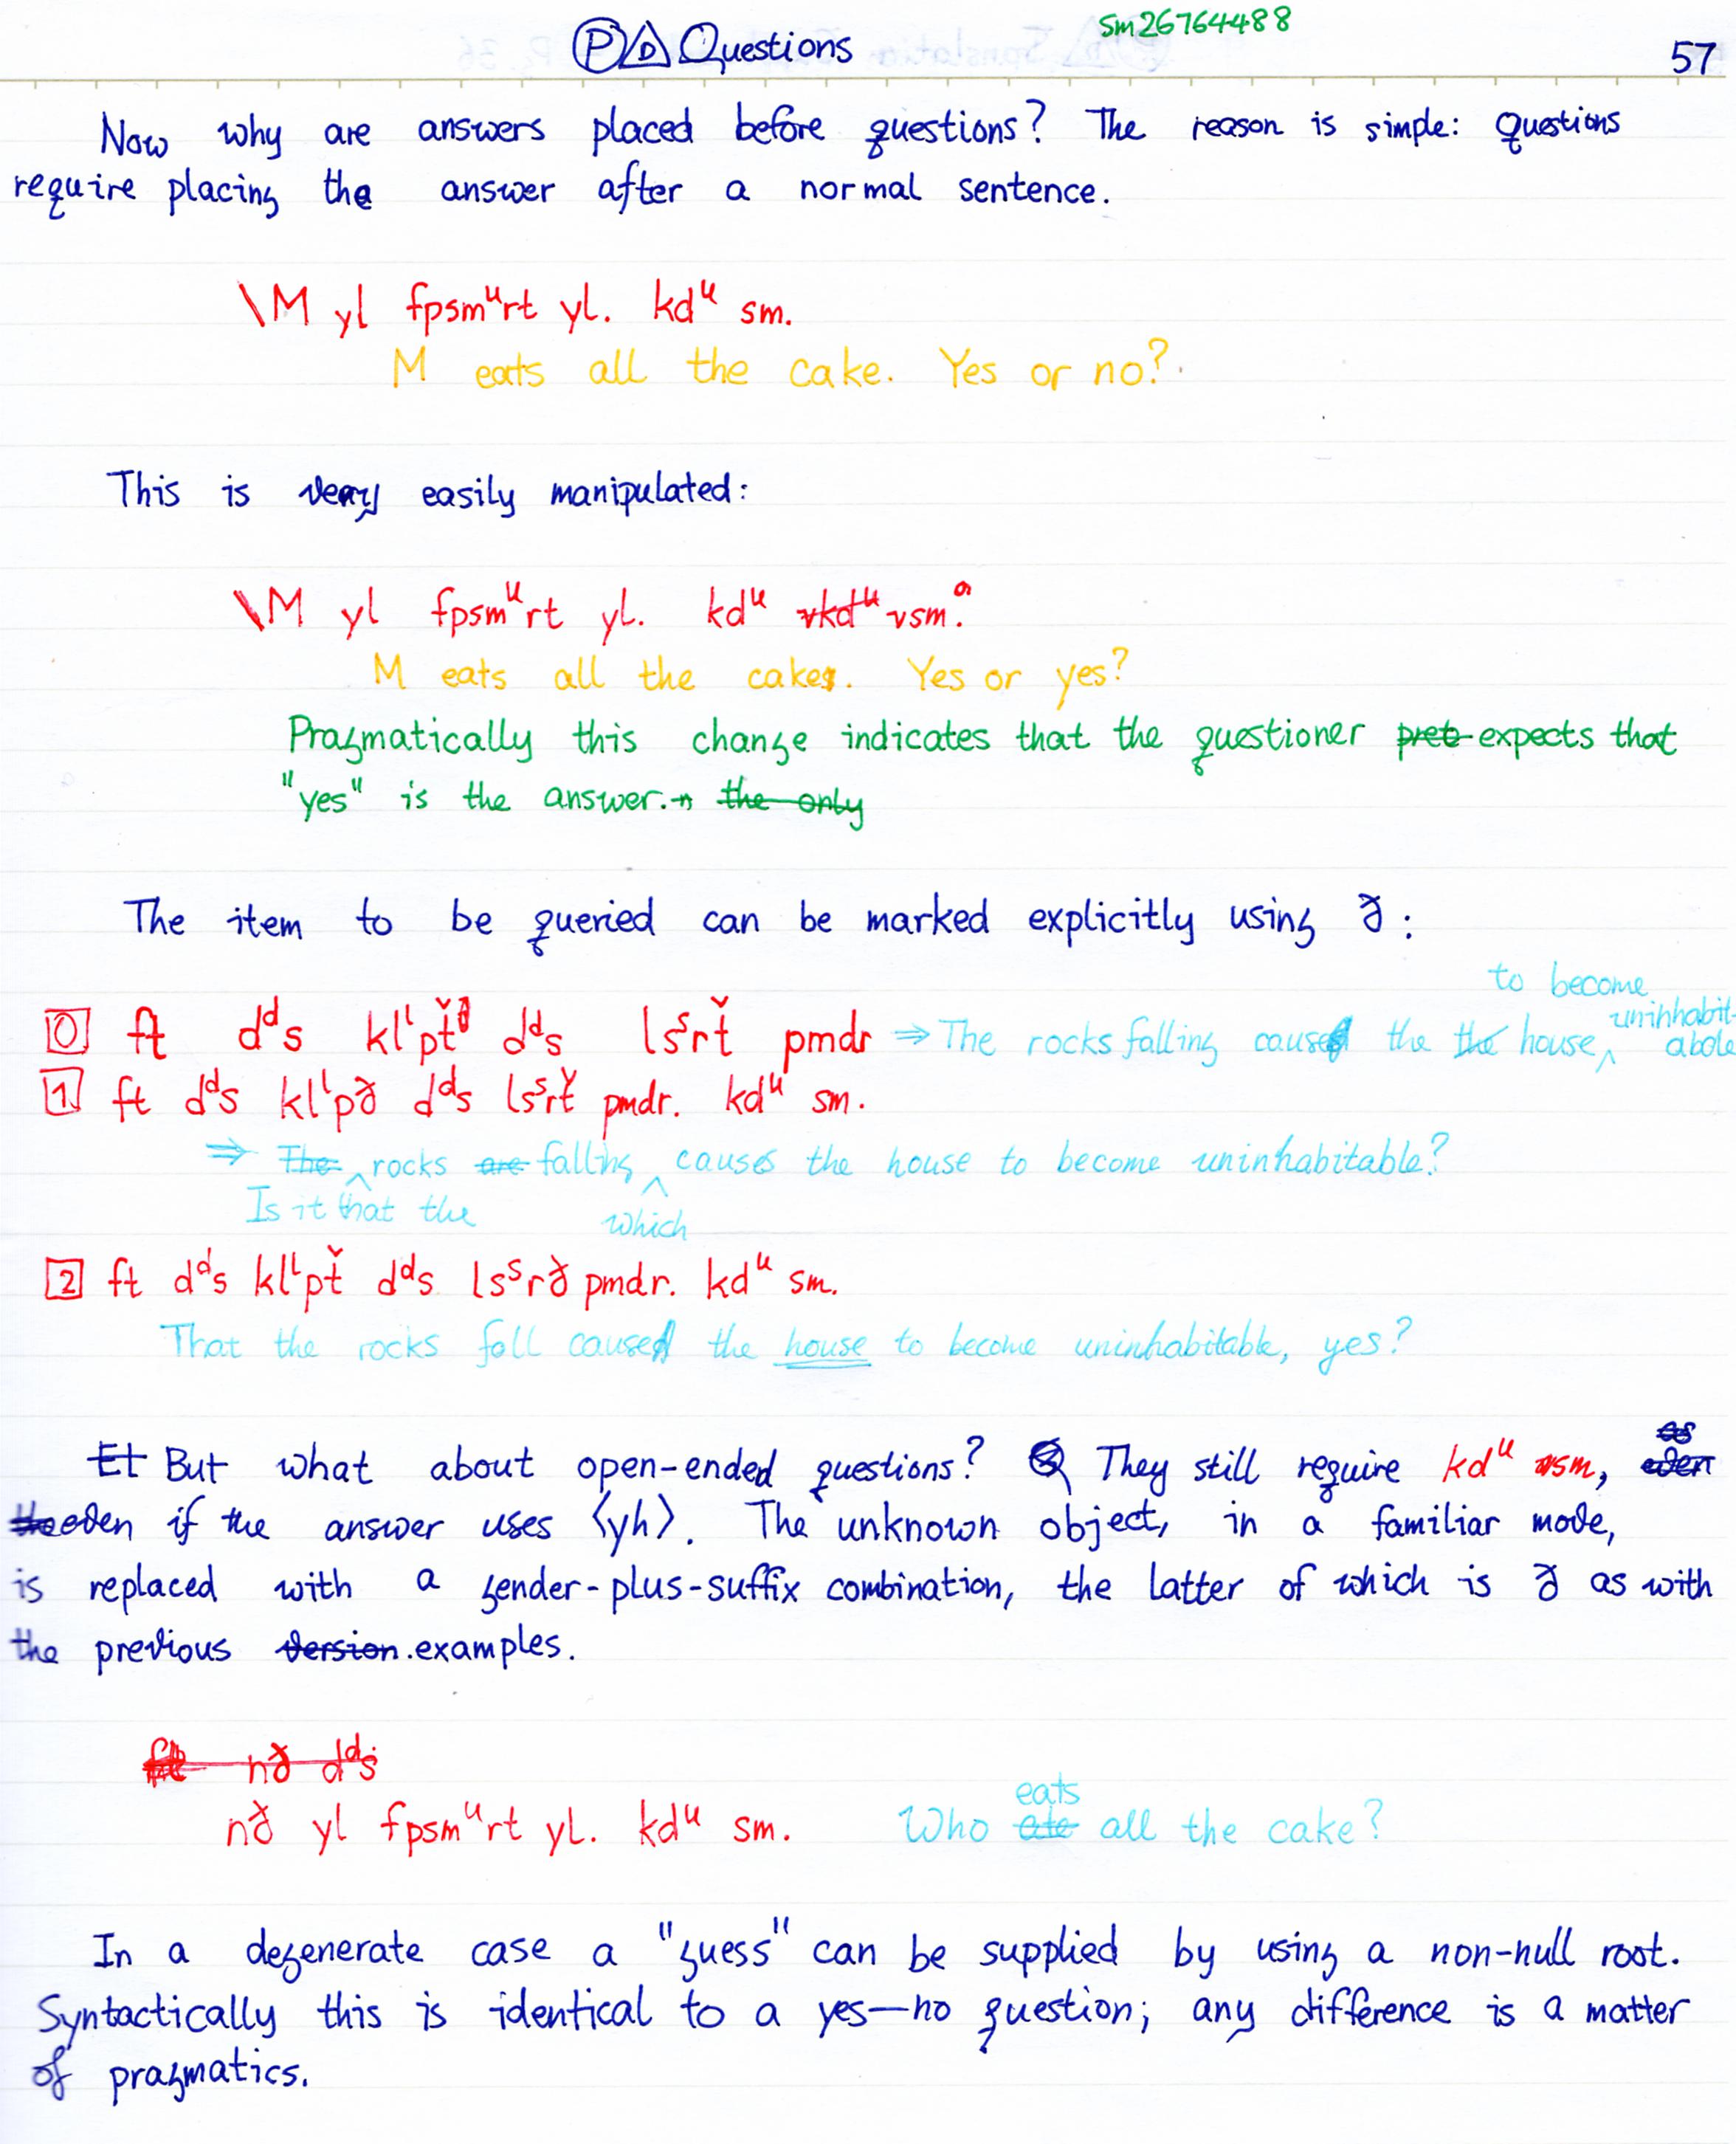 PD Questions
sm26764488
57
Now why are answers placed before questions? The reason is simple: Questions
require placing the answer after a normal sentence.
\M yl fpsmᵘrt yl. kdᵘ sm.
M eats all the cake. Yes or no?
This is very easily manipulated:
\M yl fpsmᵘrt yl. kdᵘ vkdᵘ vsm.
M eats all the cake. Yes or yes?
Pragmatically this change indicates that the questioner pret expects that
"yes" is the answer. the only
The item to be queried can be marked explicitly using ð:
to become
uninhabit-
0 ft dᵈs klˡpť dᵈs lsˢrť pmdr ⇒ The rocks falling caused the the house ‸ abole
1 ft dᵈs klˡpð dᵈs lsˢrť pmdr. kdᵘ sm.
⇒ The ‸ rocks are falling ‸ causes the house to become uninhabitable?
Is it that the which
2 ft dᵈs klˡpť dᵈs lsˢrð pmdr. kdᵘ sm.
That the rocks fall caused the house to become uninhabitable, yes?
as
Et But what about open-ended questions? They still require kdᵘ sm, even
even if the answer uses ⟨yh⟩. The unknown object, in a familiar move,
is replaced with a gender-plus-suffix combination, the latter of which is ð as with
the previous version. examples.
nð dᵈs
eats
nð yl fpsmᵘrt yl. kdᵘ sm. Who ate all the cake?
In a degenerate case a "guess" can be supplied by using a non-null root.
Syntactically this is identical to a yes—no question; any difference is a matter
of pragmatics.